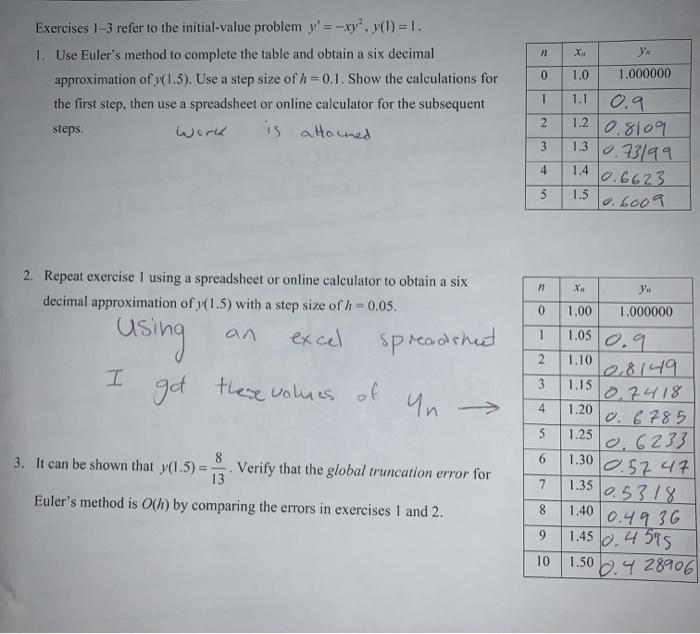 Exercises 1–3 refer to the initial-value problem y' = −xy², y(1) = 1.
1. Use Euler's method to complete the table and obtain a six decimal
approximation of y(1.5). Use a step size of h = 0.1. Show the calculations for
the first step, then use a spreadsheet or online calculator for the subsequent
steps.
work is attached
n xₙ yₙ
0 1.0 1.000000
1 1.1 0.9
2 1.2 0.8109
3 1.3 0.73199
4 1.4 0.6623
5 1.5 0.6009
2. Repeat exercise 1 using a spreadsheet or online calculator to obtain a six
decimal approximation of y(1.5) with a step size of h = 0.05.
Using an excel spreadsheet
I got these values of yₙ →
n xₙ yₙ
0 1.00 1.000000
1 1.05 0.9
2 1.10 0.8149
3 1.15 0.7418
4 1.20 0.6785
5 1.25 0.6233
6 1.30 0.5747
7 1.35 0.5318
8 1.40 0.4936
9 1.45 0.4595
10 1.50 0.428906
3. It can be shown that y(1.5) = 8/13. Verify that the global truncation error for
Euler's method is O(h) by comparing the errors in exercises 1 and 2.